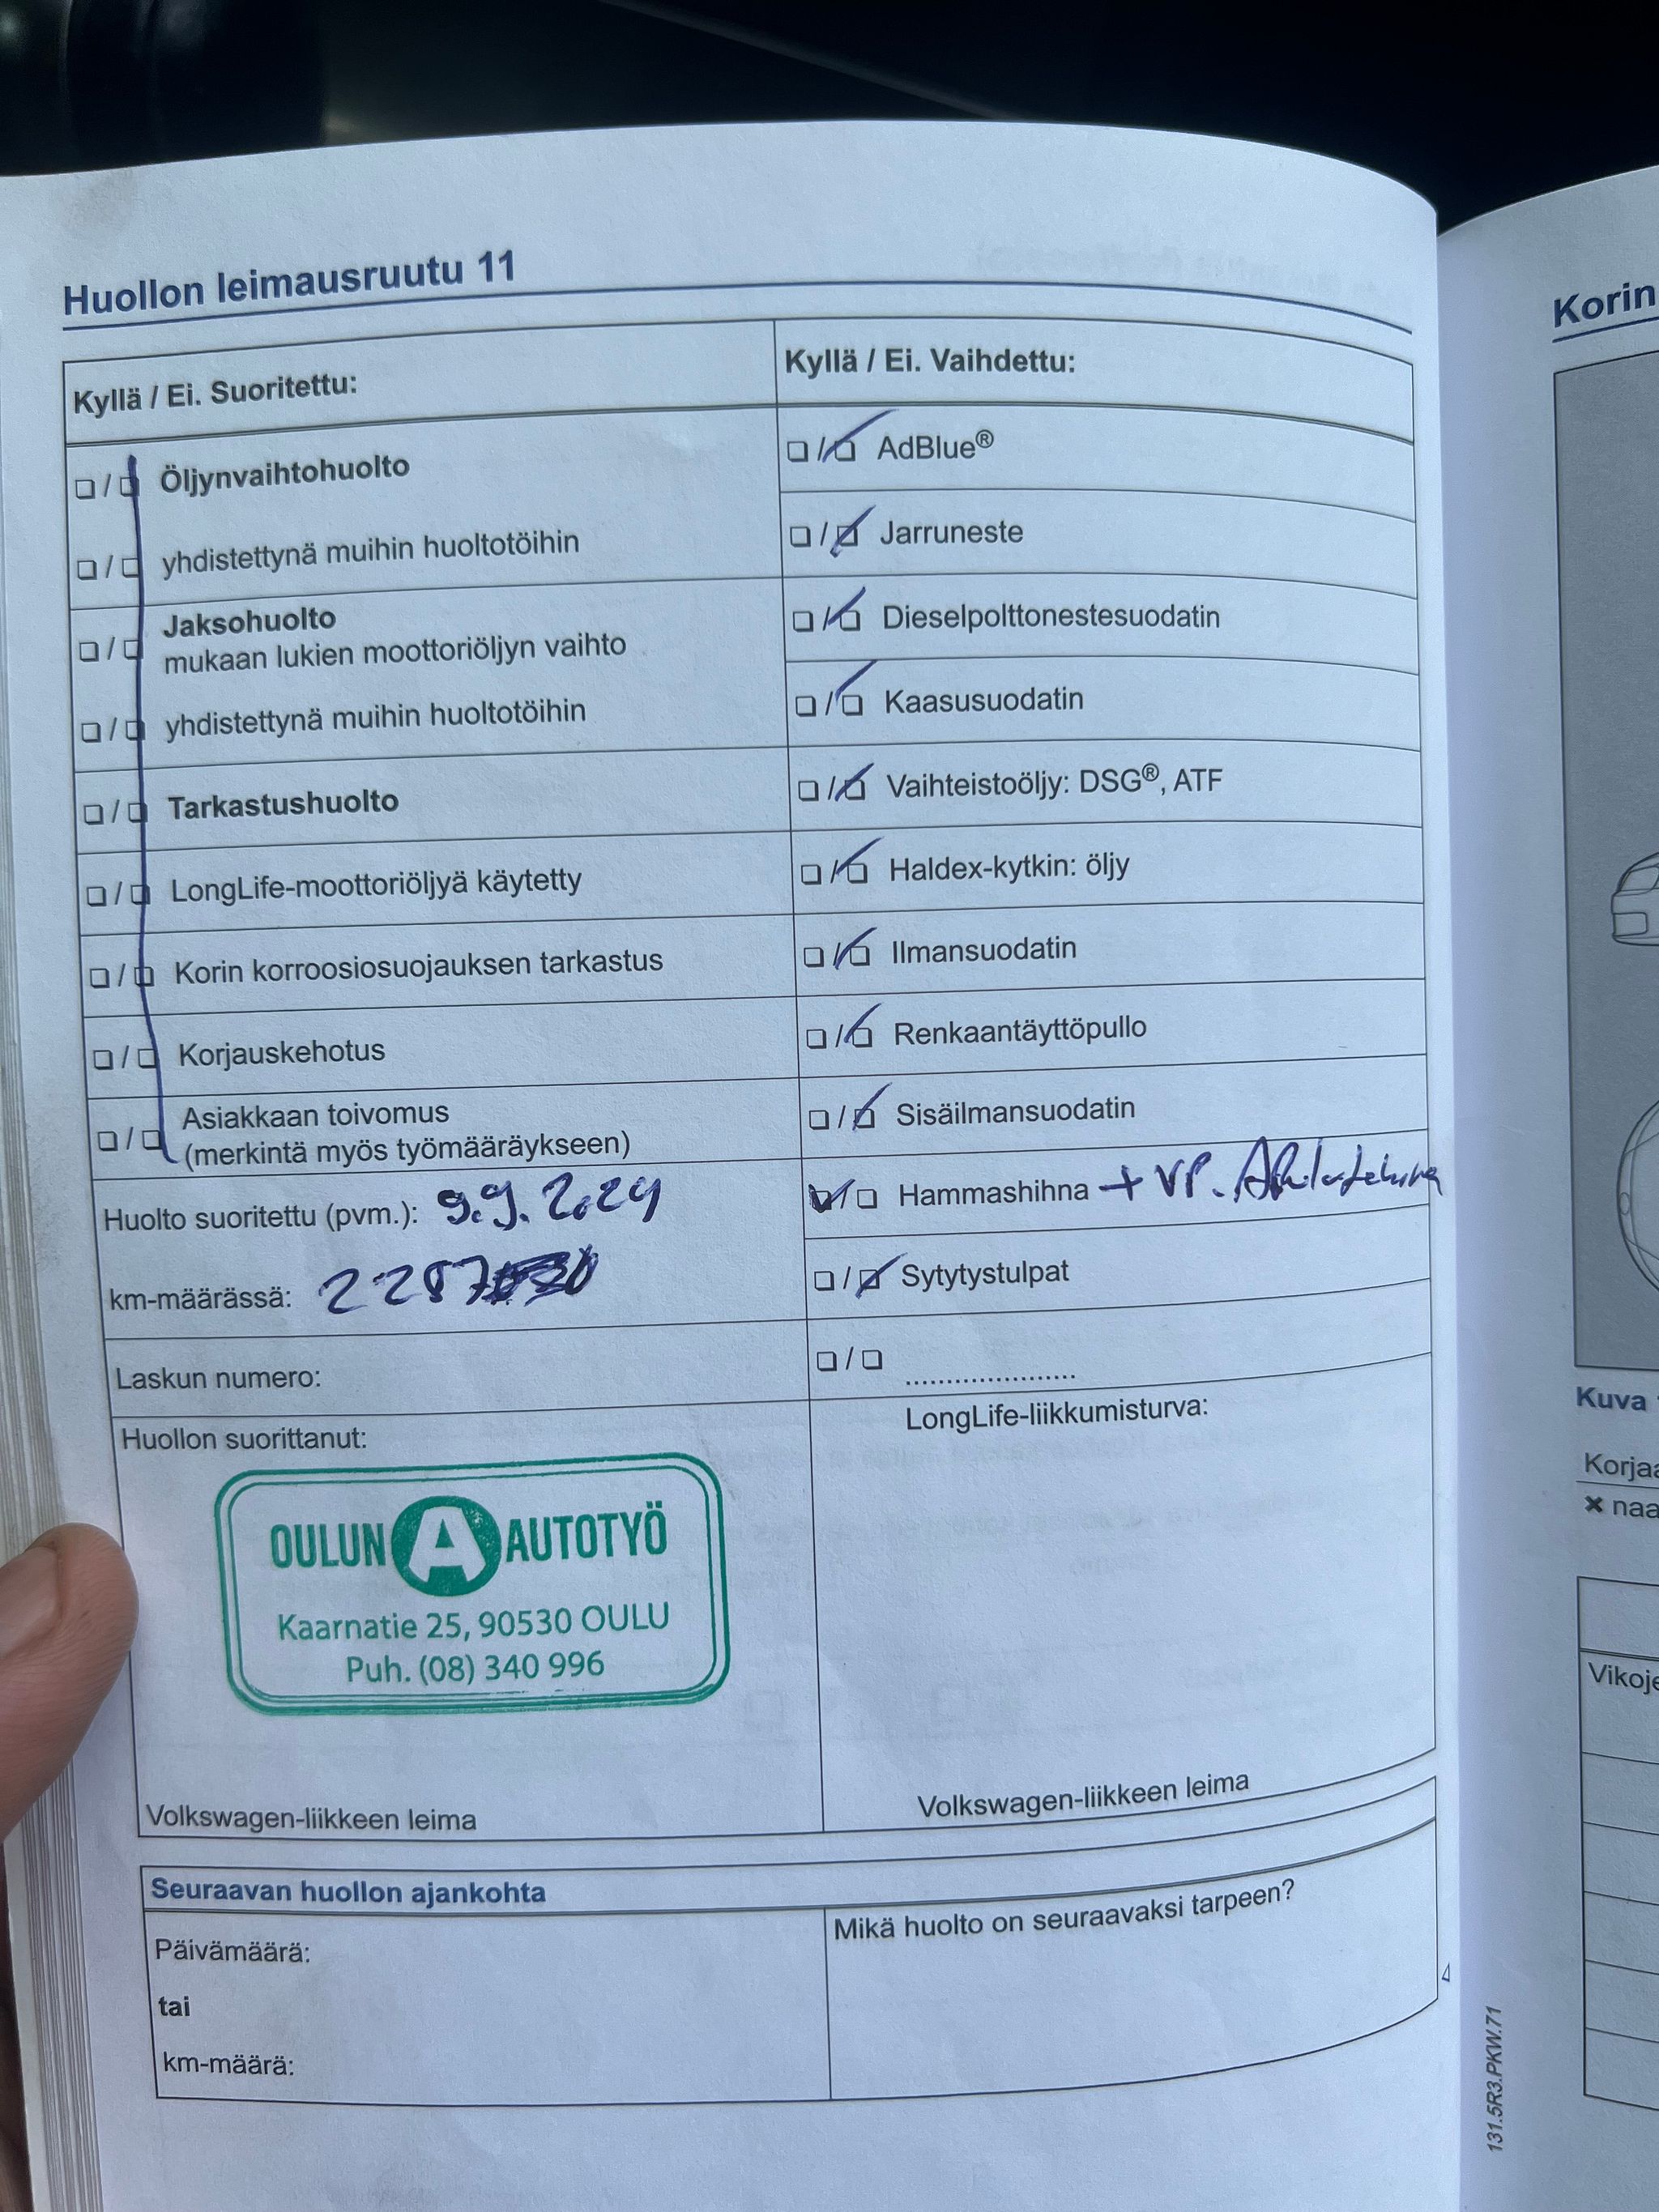 Huollon leimausruutu 11
Kyllä / Ei. Suoritettu:
☐ / ☐ Öljynvaihtohuolto
☐ / ☐ yhdistettynä muihin huoltotöihin
☐ / ☐ Jaksohuolto
mukaan lukien moottoriöljyn vaihto
☐ / ☐ yhdistettynä muihin huoltotöihin
☐ / ☐ Tarkastushuolto
☐ / ☐ LongLife-moottoriöljyä käytetty
☐ / ☐ Korin korroosiosuojauksen tarkastus
☐ / ☐ Korjauskehotus
☐ / ☐ Asiakkaan toivomus
(merkintä myös työmääräykseen)
Huolto suoritettu (pvm.): 9.9.2024
km-määrässä:
Laskun numero:
Huollon suorittanut:
OULUN A AUTOTYÖ
Kaarnatie 25, 90530 OULU
Puh. (08) 340 996
Volkswagen-liikkeen leima
Kyllä / Ei. Vaihdettu:
☐ / ☑ AdBlue®
☐ / ☑ Jarruneste
☐ / ☑ Dieselpolttonestesuodatin
☐ / ☑ Kaasusuodatin
☐ / ☑ Vaihteistoöljy: DSG®, ATF
☐ / ☑ Haldex-kytkin: öljy
☐ / ☑ Ilmansuodatin
☐ / ☑ Renkaantäyttöpullo
☐ / ☑ Sisäilmansuodatin
☑ / ☐ Hammashihna + VP.
☐ / ☑ Sytytystulpat
☐ / ☐ .....................
LongLife-liikkumisturva:
Volkswagen-liikkeen leima
Seuraavan huollon ajankohta
Päivämäärä:
tai
km-määrä:
Mikä huolto on seuraavaksi tarpeen?
131.5R3.PKW.71
Korin
Kuva
Korjaa
✖ naa
Vikoje